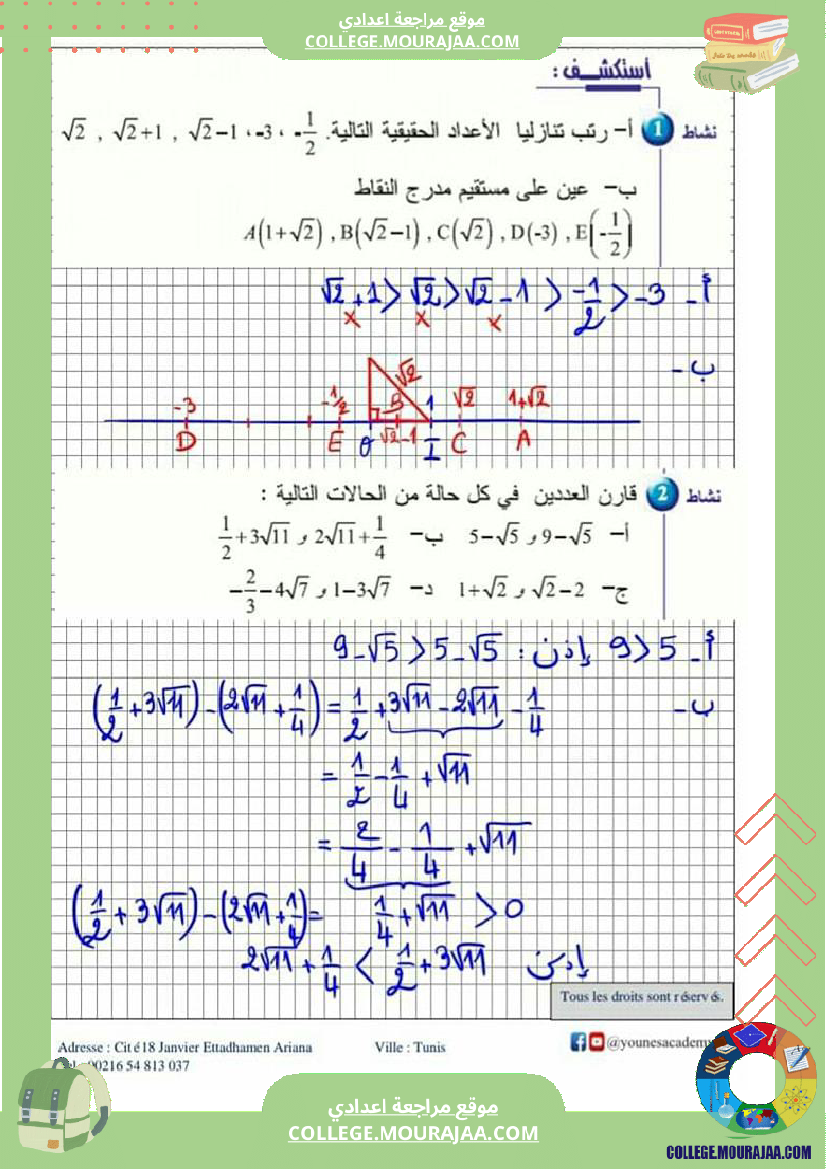 موقع مراجعة اعدادي
COLLEGE.MOURAJAA.COM
أستكشف :
نشاط 1 أ- رتب تنازليا الأعداد الحقيقية التالية. -1/2 ، -3 ، √2-1 , √2+1 , √2
ب- عين على مستقيم مدرج النقاط
A(1+√2) , B(√2-1) , C(√2) , D(-3) , E(-1/2)
أ- √2+1 > √2 > √2-1 > -1/2 > -3
x x x
ب-
√2
-3 -1/2 B 1 √2 1+√2
D E O √2-1 I C A
نشاط 2 قارن العددين في كل حالة من الحالات التالية :
أ- 9-√5 و 5-√5 ب- 2√11+1/4 و 1/2+3√11
ج- √2-2 و 1+√2 د- 1-3√7 و -2/3-4√7
أ- 9>5 إذن : 9-√5 > 5-√5
ب- (1/2+3√11)-(2√11+1/4) = 1/2+3√11-2√11-1/4
= 1/2-1/4+√11
= 2/4-1/4+√11
(1/2+3√11)-(2√11+1/4)= 1/4+√11 >0
إذن 2√11+1/4 < 1/2+3√11
Tous les droits sont réservés.
Adresse : Cité18 Janvier Ettadhamen Ariana Ville : Tunis @younesacadem
00216 54 813 037
موقع مراجعة اعدادي
COLLEGE.MOURAJAA.COM
COLLEGE.MOURAJAA.COM